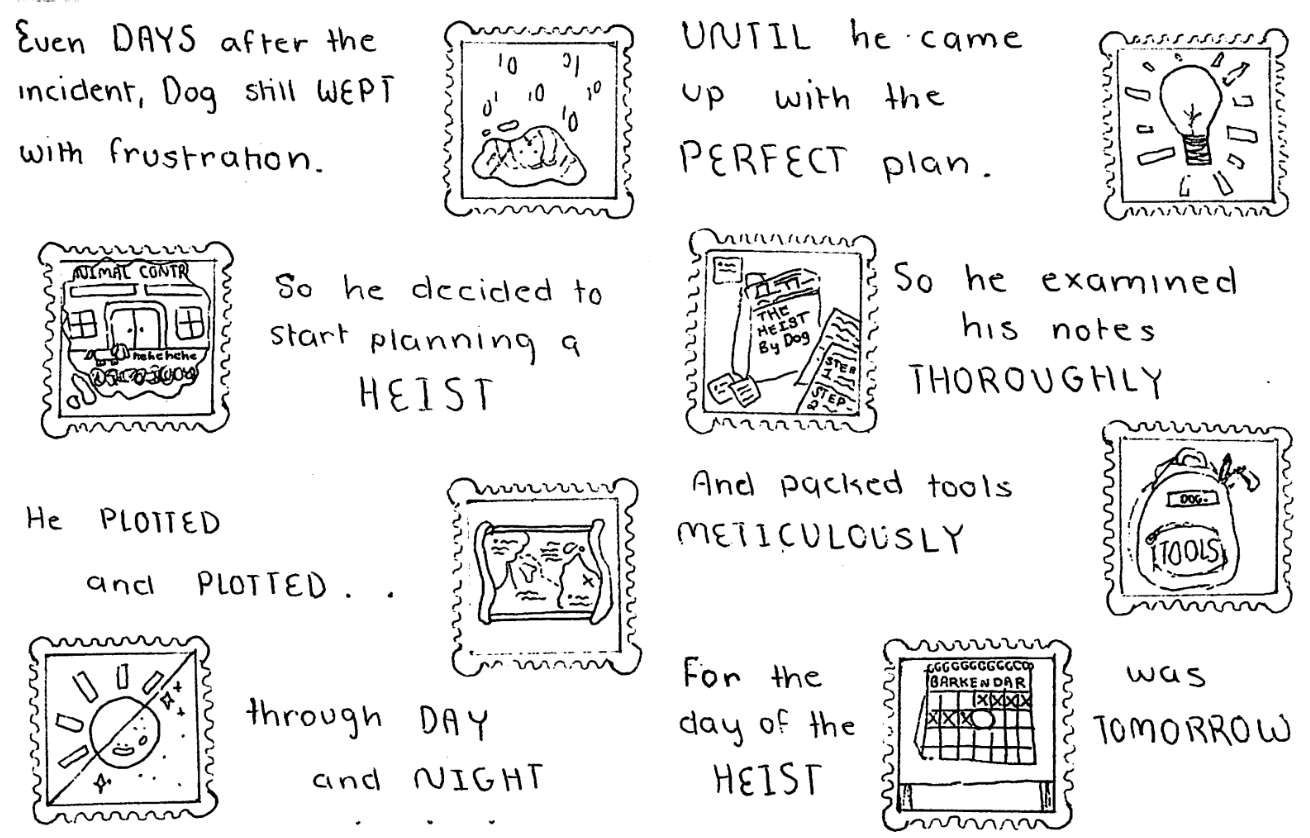 Even DAYS after the
incident, Dog still WEPT
with frustration.
ANIMAL CONTR
hehehehe
So he decided to
start planning a
HEIST
He PLOTTED
and PLOTTED . .
through DAY
and NIGHT
. . .
UNTIL he came
up with the
PERFECT plan.
THE
HEIST
By Dog
STEP
1
STEP
2
So he examined
his notes
THOROUGHLY
And packed tools
METICULOUSLY
DOG.
TOOLS
For the
day of the
HEIST
BARKENDAR
was
TOMORROW